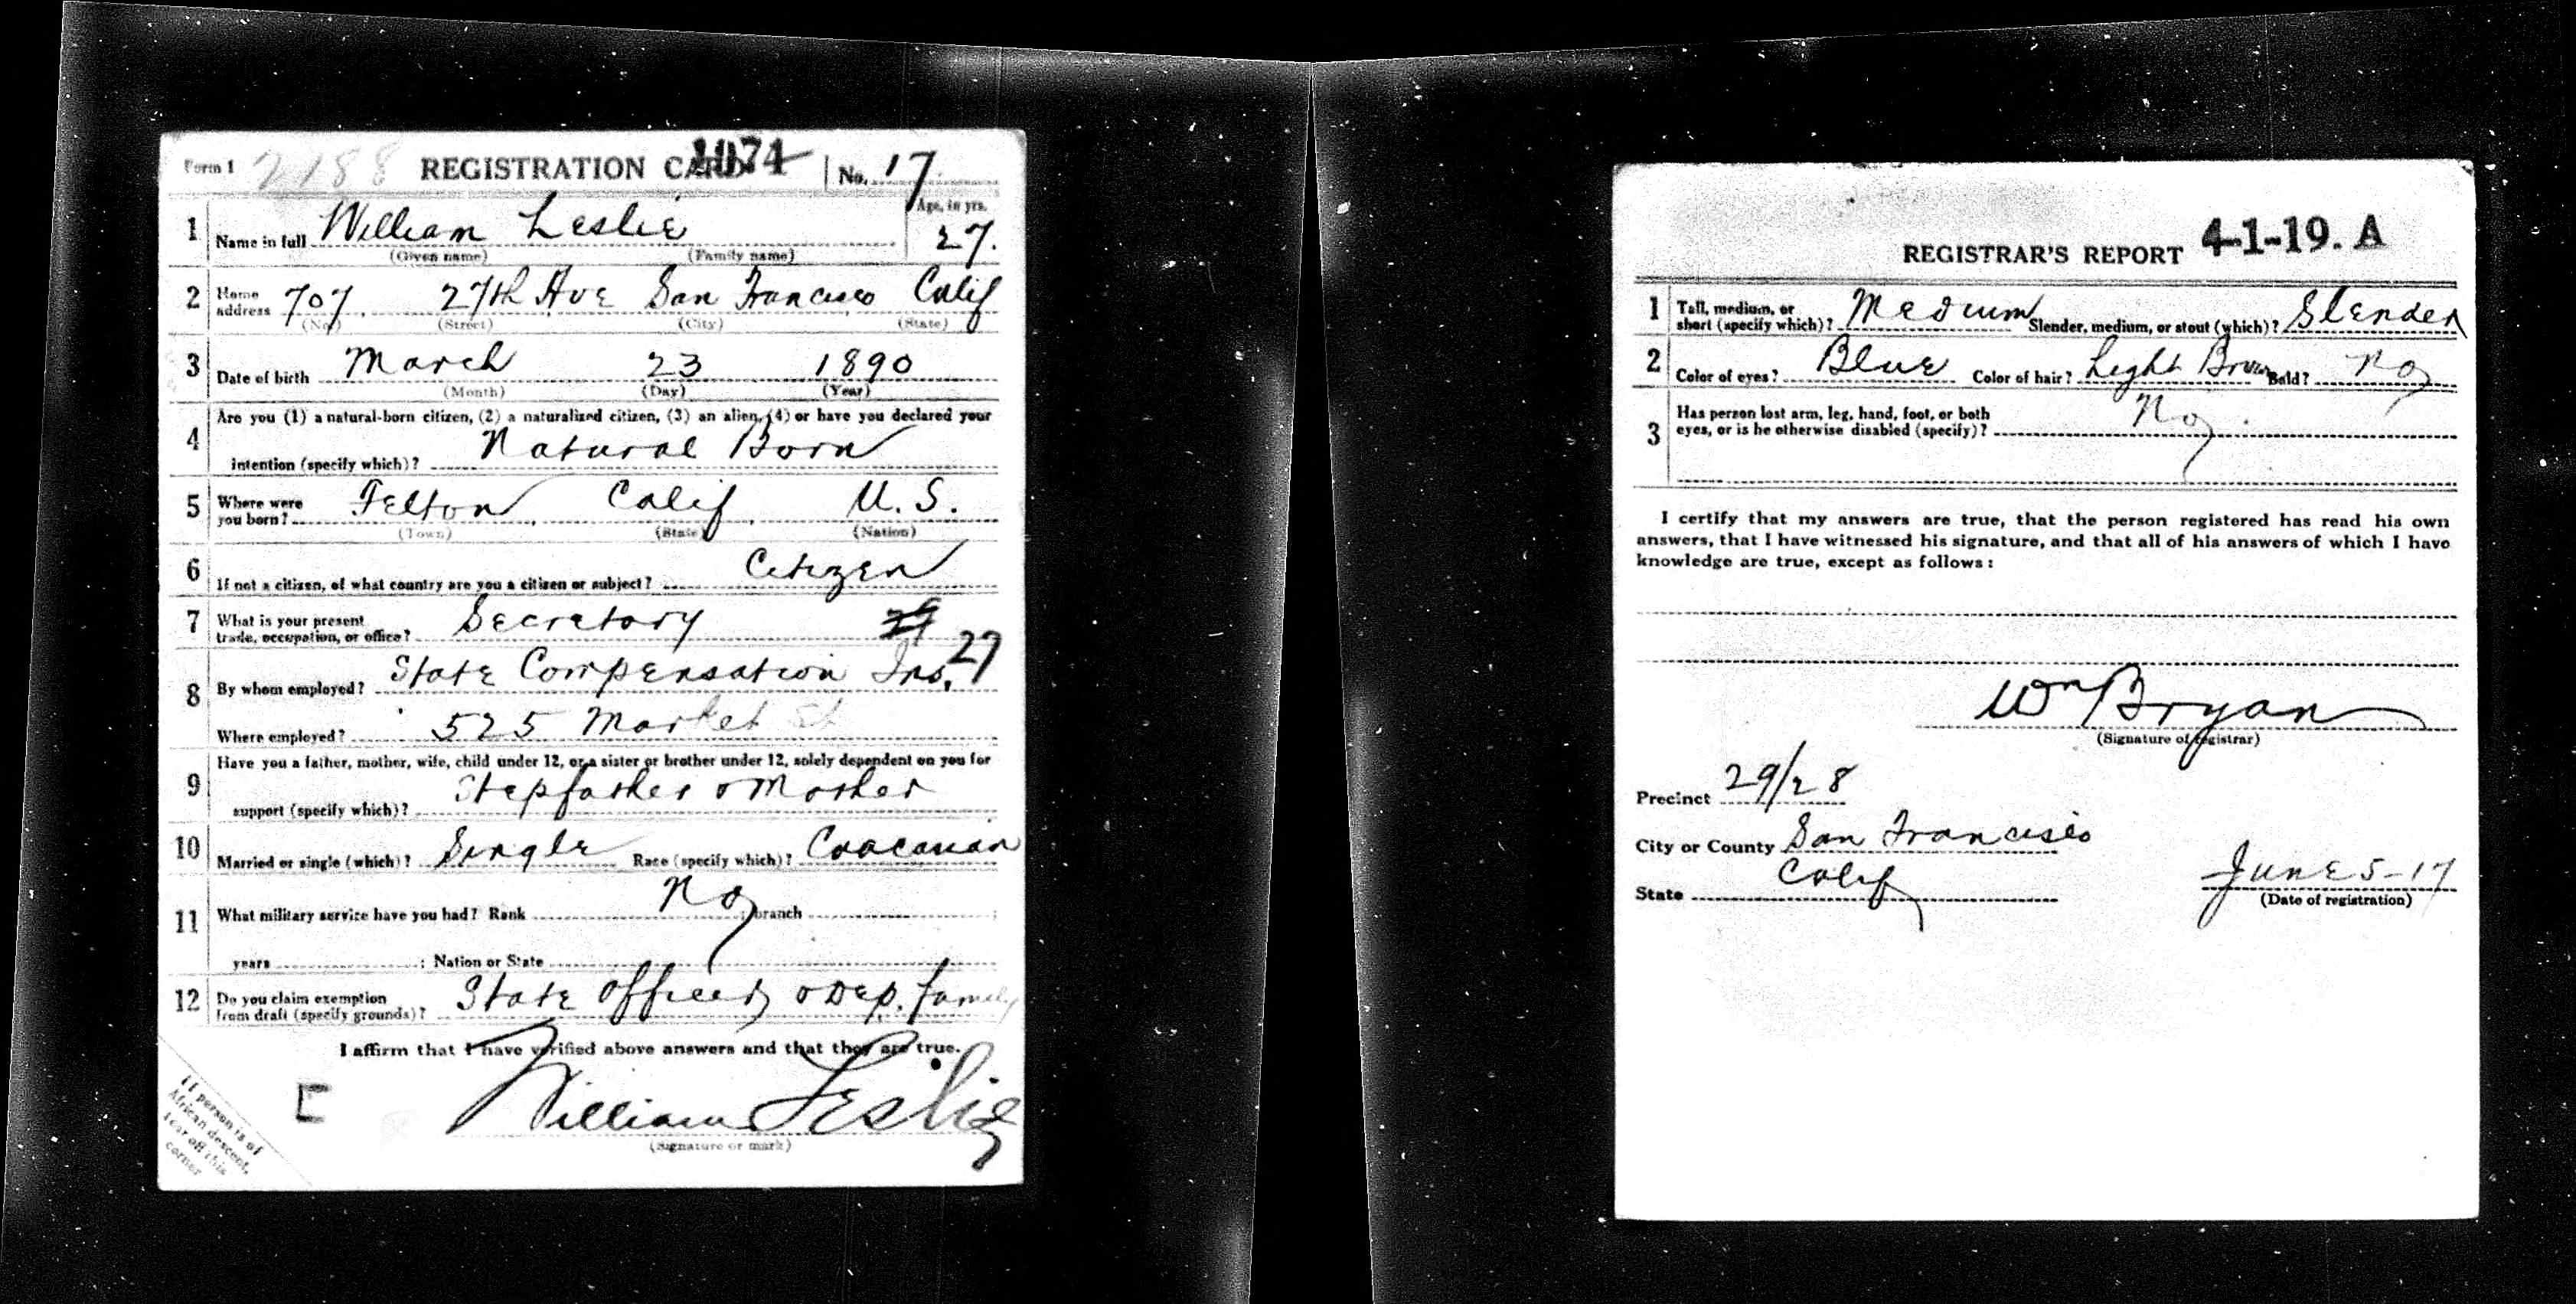 Form 1 2188 REGISTRATION CARD 1074 No. 17
Age, in yrs.
1 Name in full William Leslie 27.
(Given name) (Family name)
2 Home address 707. 27th Ave San Francisco Calif
(No.) (Street) (City) (State)
3 Date of birth March 23 1890
(Month) (Day) (Year)
Are you (1) a natural-born citizen, (2) a naturalized citizen, (3) an alien, (4) or have you declared your
4 intention (specify which)? Natural Born
5 Where were you born? Felton, Calif, U. S.
(Town) (State) (Nation)
6 If not a citizen, of what country are you a citizen or subject? Citizen
7 What is your present trade, occupation, or office? Secretary
27
8 By whom employed? State Compensation Ins.
Where employed? 525 Market St
Have you a father, mother, wife, child under 12, or a sister or brother under 12, solely dependent on you for
9 support (specify which)? Stepfather & Mother
10 Married or single (which)? Single Race (specify which)? Coacasian
11 What military service have you had? Rank No; branch ;
years ; Nation or State
12 Do you claim exemption from draft (specify grounds)? State officer, & Dep. family
I affirm that I have verified above answers and that they are true.
William Leslie
(Signature or mark)
If person is of
African descent,
tear off this
corner
REGISTRAR'S REPORT 4-1-19. A
1 Tall, medium, or short (specify which)? Medium Slender, medium, or stout (which)? Slender
2 Color of eyes? Blue Color of hair? Light Brown Bald? No
Has person lost arm, leg, hand, foot, or both
3 eyes, or is he otherwise disabled (specify)? No
I certify that my answers are true, that the person registered has read his own
answers, that I have witnessed his signature, and that all of his answers of which I have
knowledge are true, except as follows:
Wm Bryan
(Signature of registrar)
Precinct 29/28
City or County San Francisco
State Calif June 5-17
(Date of registration)